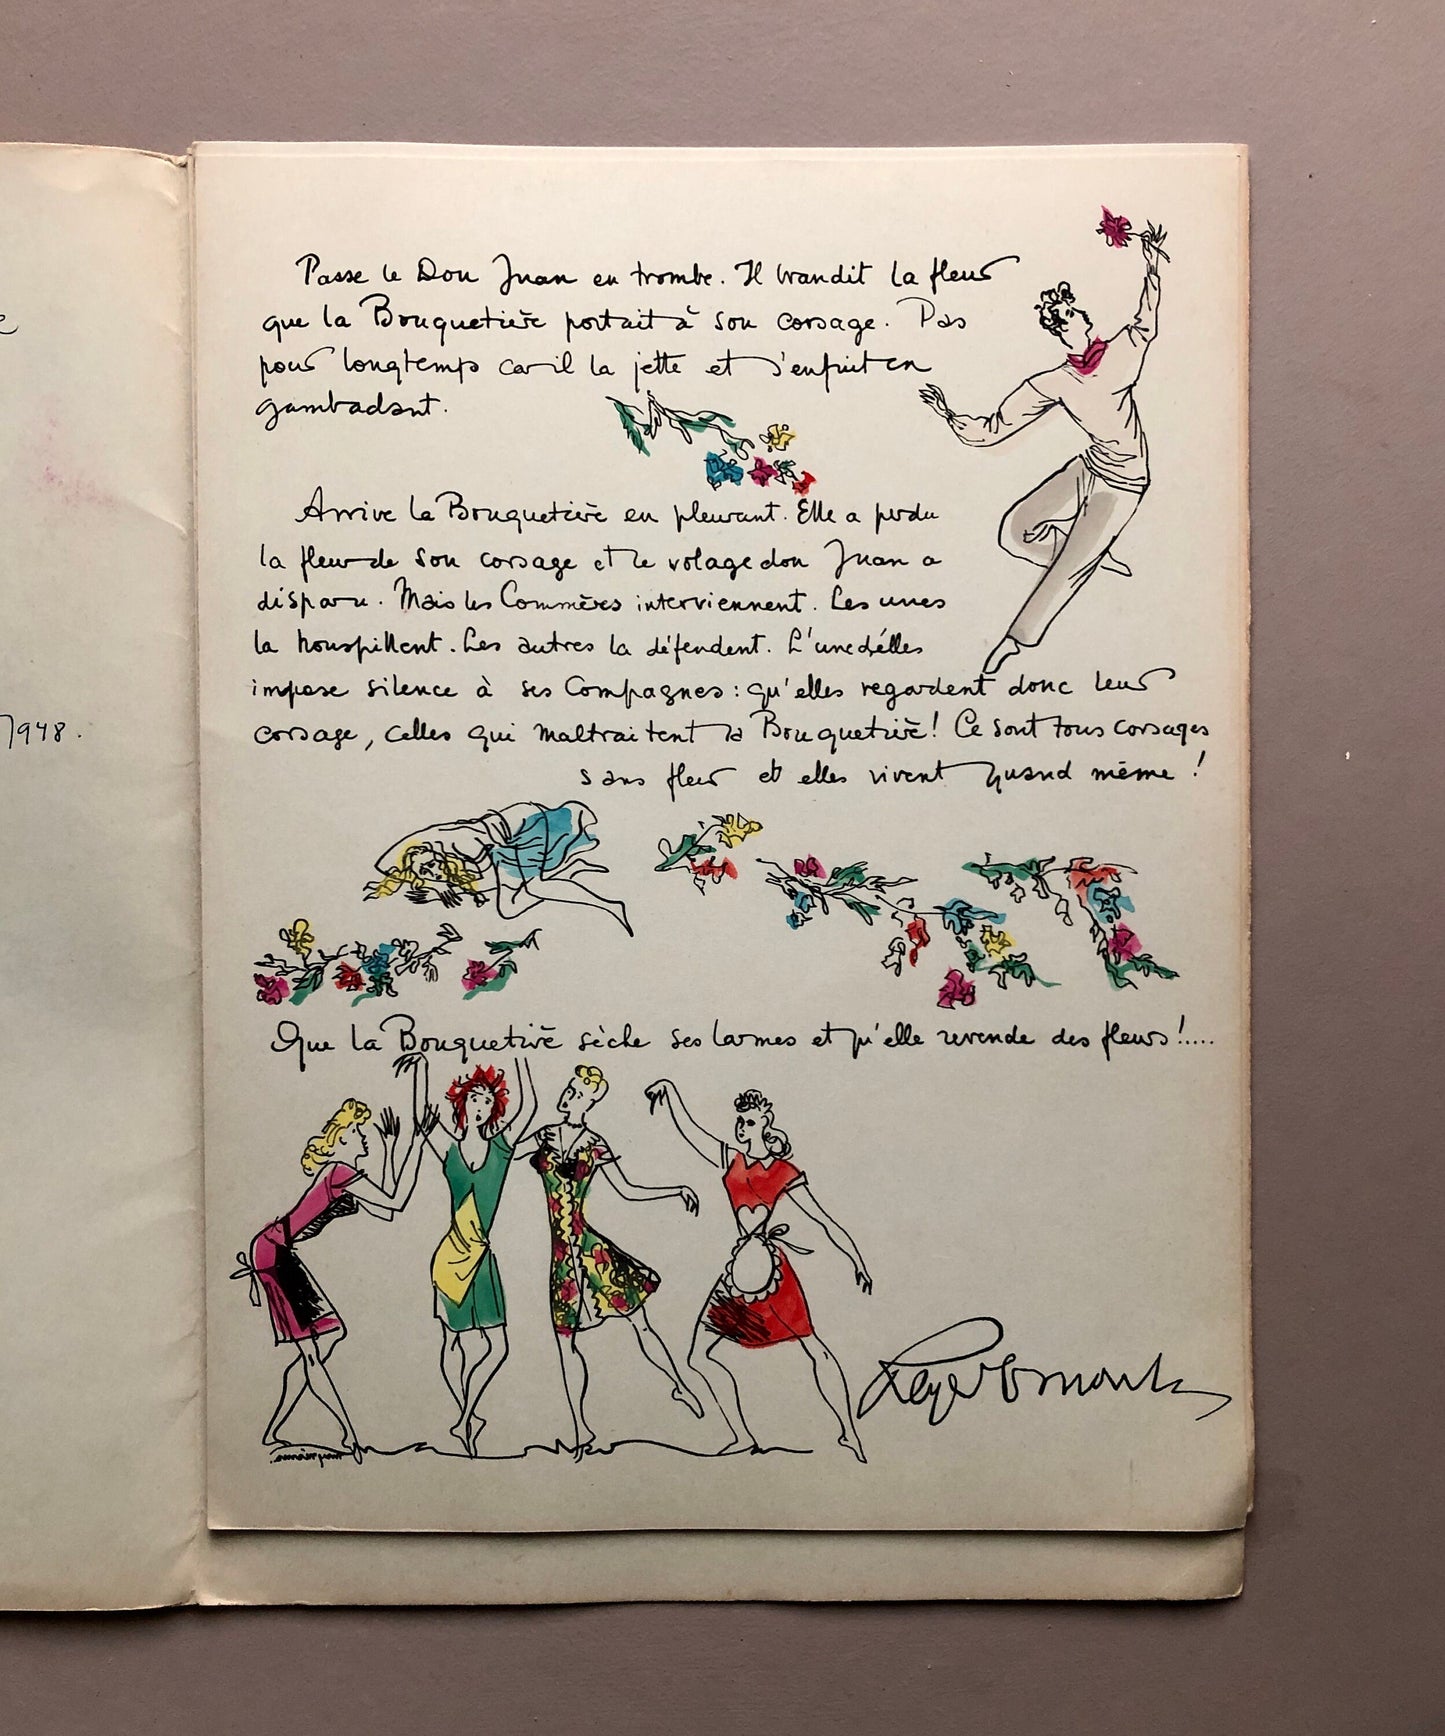 1948.
Passe le Don Juan en trombe. Il brandit la fleur
que la Bouquetière portait à son corsage. Pas
pour longtemps car il la jette et s'enfuit en
gambadant.
Arrive la Bouquetière en pleurant. Elle a perdu
la fleur de son corsage et le volage don Juan a
disparu. Mais les Commères interviennent. Les unes
la houspillent. Les autres la défendent. L'une d'elles
impose silence à ses Compagnes : qu'elles regardent donc leur
corsage, celles qui maltraitent la Bouquetière ! Ce sont tous corsages
sans fleur et elles vivent quand même !
Que la Bouquetière sèche ses larmes et qu'elle revende des fleurs !.....